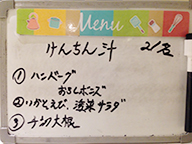 Menu
けんちん汁 21名
① ハンバーグ
おろしポンズ
② いかとえび、海藻サラダ
③ チンゲン大根